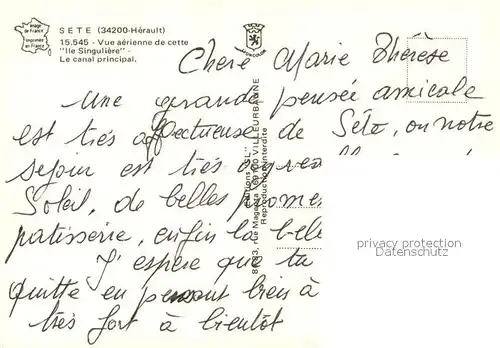 Image
de France
Imprimée
en France
SETE (34200-Hérault)
15.545 - Vue aérienne de cette
"Ile Singulière" -
Le canal principal.
Chere Marie Thérèse
Une grande pensée amicale
est très affectueuse de Sète, ou notre
sejour est très
Soleil, de belles
patisserie, enfin la belle
J'espère que tu
quitte en pensant bien à
très fort à bientôt
Editions "SL"
8-83, rue Magenta 69100 VILLEURBANNE
Reproduction interdite
privacy protection
Datenschutz